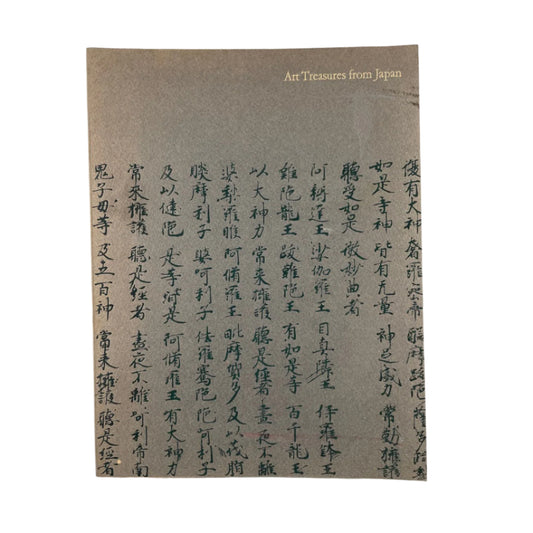 Art Treasures from Japan
優有大神 奢羅蜜帝 醯摩跋陀
如是等神 皆有无量 神足威力 常勤擁護
聽受如是 微妙典者
阿耨達王 娑伽羅王 目真隣王 伊羅鉢王
難陀龍王 跋難陀王 有如是等 百千龍王
以大神力 常來擁護 聽是經者 晝夜不離
婆梨羅睺 阿脩羅王 毗摩質多 及以茂脂
睒摩利子 婆呵利子 佉羅騫陀
及以揵陀 是等皆是 阿脩羅王 有大神力
常來擁護 聽是經者 晝夜不離 呵利帝南
鬼子母等 及五百神 常來擁護 聽是經者